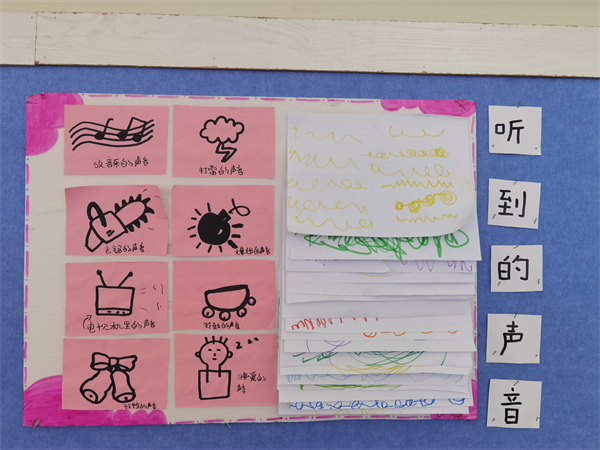 放音乐的声音
打雷的声音
电锯的声音
爆炸的声音
电视机里的声音
的声音
铃铛的声音
听
到
的
声
音